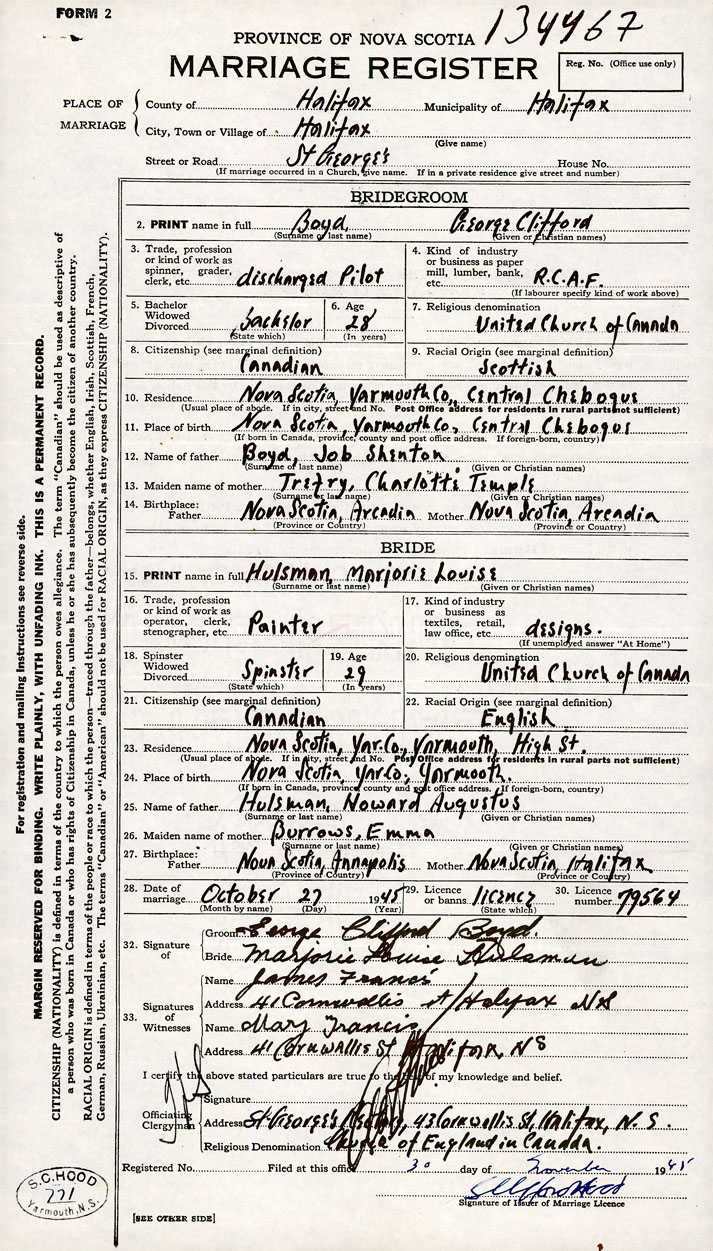 FORM 2
134467
PROVINCE OF NOVA SCOTIA
MARRIAGE REGISTER
Reg. No. (Office use only)
PLACE OF MARRIAGE
County of Halifax Municipality of Halifax
City, Town or Village of Halifax
(Give name)
Street or Road St George's House No.
(If marriage occurred in a Church, give name. If in a private residence give street and number)
BRIDEGROOM
2. PRINT name in full Boyd, George Clifford
(Surname or last name) (Given or Christian names)
3. Trade, profession or kind of work as spinner, grader, clerk, etc. discharged Pilot
4. Kind of industry or business as paper mill, lumber, bank, etc. R.C.A.F.
(If labourer specify kind of work above)
5. Bachelor Widowed Divorced bachelor
(State which)
6. Age 28
(In years)
7. Religious denomination United Church of Canada
8. Citizenship (see marginal definition) Canadian
9. Racial Origin (see marginal definition) Scottish
10. Residence Nova Scotia, Yarmouth Co., Central Chebogue
(Usual place of abode. If in city, street and No. Post Office address for residents in rural parts not sufficient)
11. Place of birth Nova Scotia, Yarmouth Co., Central Chebogue
(If born in Canada, province, county and post office address. If foreign-born, country)
12. Name of father Boyd, Job Shenton
(Surname or last name) (Given or Christian names)
13. Maiden name of mother Trefry, Charlotte Temple
(Surname or last name) (Given or Christian names)
14. Birthplace: Father Nova Scotia, Arcadia Mother Nova Scotia, Arcadia
(Province or Country) (Province or Country)
BRIDE
15. PRINT name in full Hulsman, Marjorie Louise
(Surname or last name) (Given or Christian names)
16. Trade, profession or kind of work as operator, clerk, stenographer, etc. Painter
17. Kind of industry or business as textiles, retail, law office, etc. designs.
(If unemployed answer "At Home")
18. Spinster Widowed Divorced Spinster
(State which)
19. Age 29
(In years)
20. Religious denomination United Church of Canada
21. Citizenship (see marginal definition) Canadian
22. Racial Origin (see marginal definition) English
23. Residence Nova Scotia, Yar. Co., Yarmouth, High St.
(Usual place of abode. If in city, street and No. Post Office address for residents in rural parts not sufficient)
24. Place of birth Nova Scotia, Yar. Co., Yarmouth.
(If born in Canada, province county and post office address. If foreign-born, country)
25. Name of father Hulsman, Howard Augustus
(Surname or last name) (Given or Christian names)
26. Maiden name of mother Burrows, Emma
(Surname or last name) (Given or Christian names)
27. Birthplace: Father Nova Scotia, Annapolis Mother Nova Scotia, Halifax
(Province or Country) (Province or Country)
28. Date of marriage October 27 1945
(Month by name) (Day) (Year)
29. Licence or banns licence
(State which)
30. Licence number 79564
32. Signature of
Groom George Clifford Boyd.
Bride Marjorie Louise Hulsman
33. Signatures of Witnesses
Name James Francis
Address 41 Cornwallis St Halifax NS
Name Mary Francis
Address 41 Cornwallis St Halifax, NS
I certify the above stated particulars are true to the best of my knowledge and belief.
Officiating Clergyman
Signature
Address St George's Rectory, 43 Cornwallis St, Halifax, N.S.
Religious Denomination Church of England in Canada.
Registered No. Filed at this office 30 day of November 1945
Signature of Issuer of Marriage Licence
[SEE OTHER SIDE]
S.C. HOOD
771
Yarmouth, N.S.
For registration and mailing instructions see reverse side.
MARGIN RESERVED FOR BINDING. WRITE PLAINLY, WITH UNFADING INK. THIS IS A PERMANENT RECORD.
CITIZENSHIP (NATIONALITY) is defined in terms of the country to which the person owes allegiance. The term "Canadian" should be used as descriptive of
a person who was born in Canada or who has rights of Citizenship in Canada, unless he or she has subsequently become the citizen of another country.
RACIAL ORIGIN is defined in terms of the people or race to which the person—traced through the father—belongs, whether English, Irish, Scottish, French,
German, Russian, Ukrainian, etc. The terms "Canadian" or "American" should not be used for RACIAL ORIGIN, as they express CITIZENSHIP (NATIONALITY).